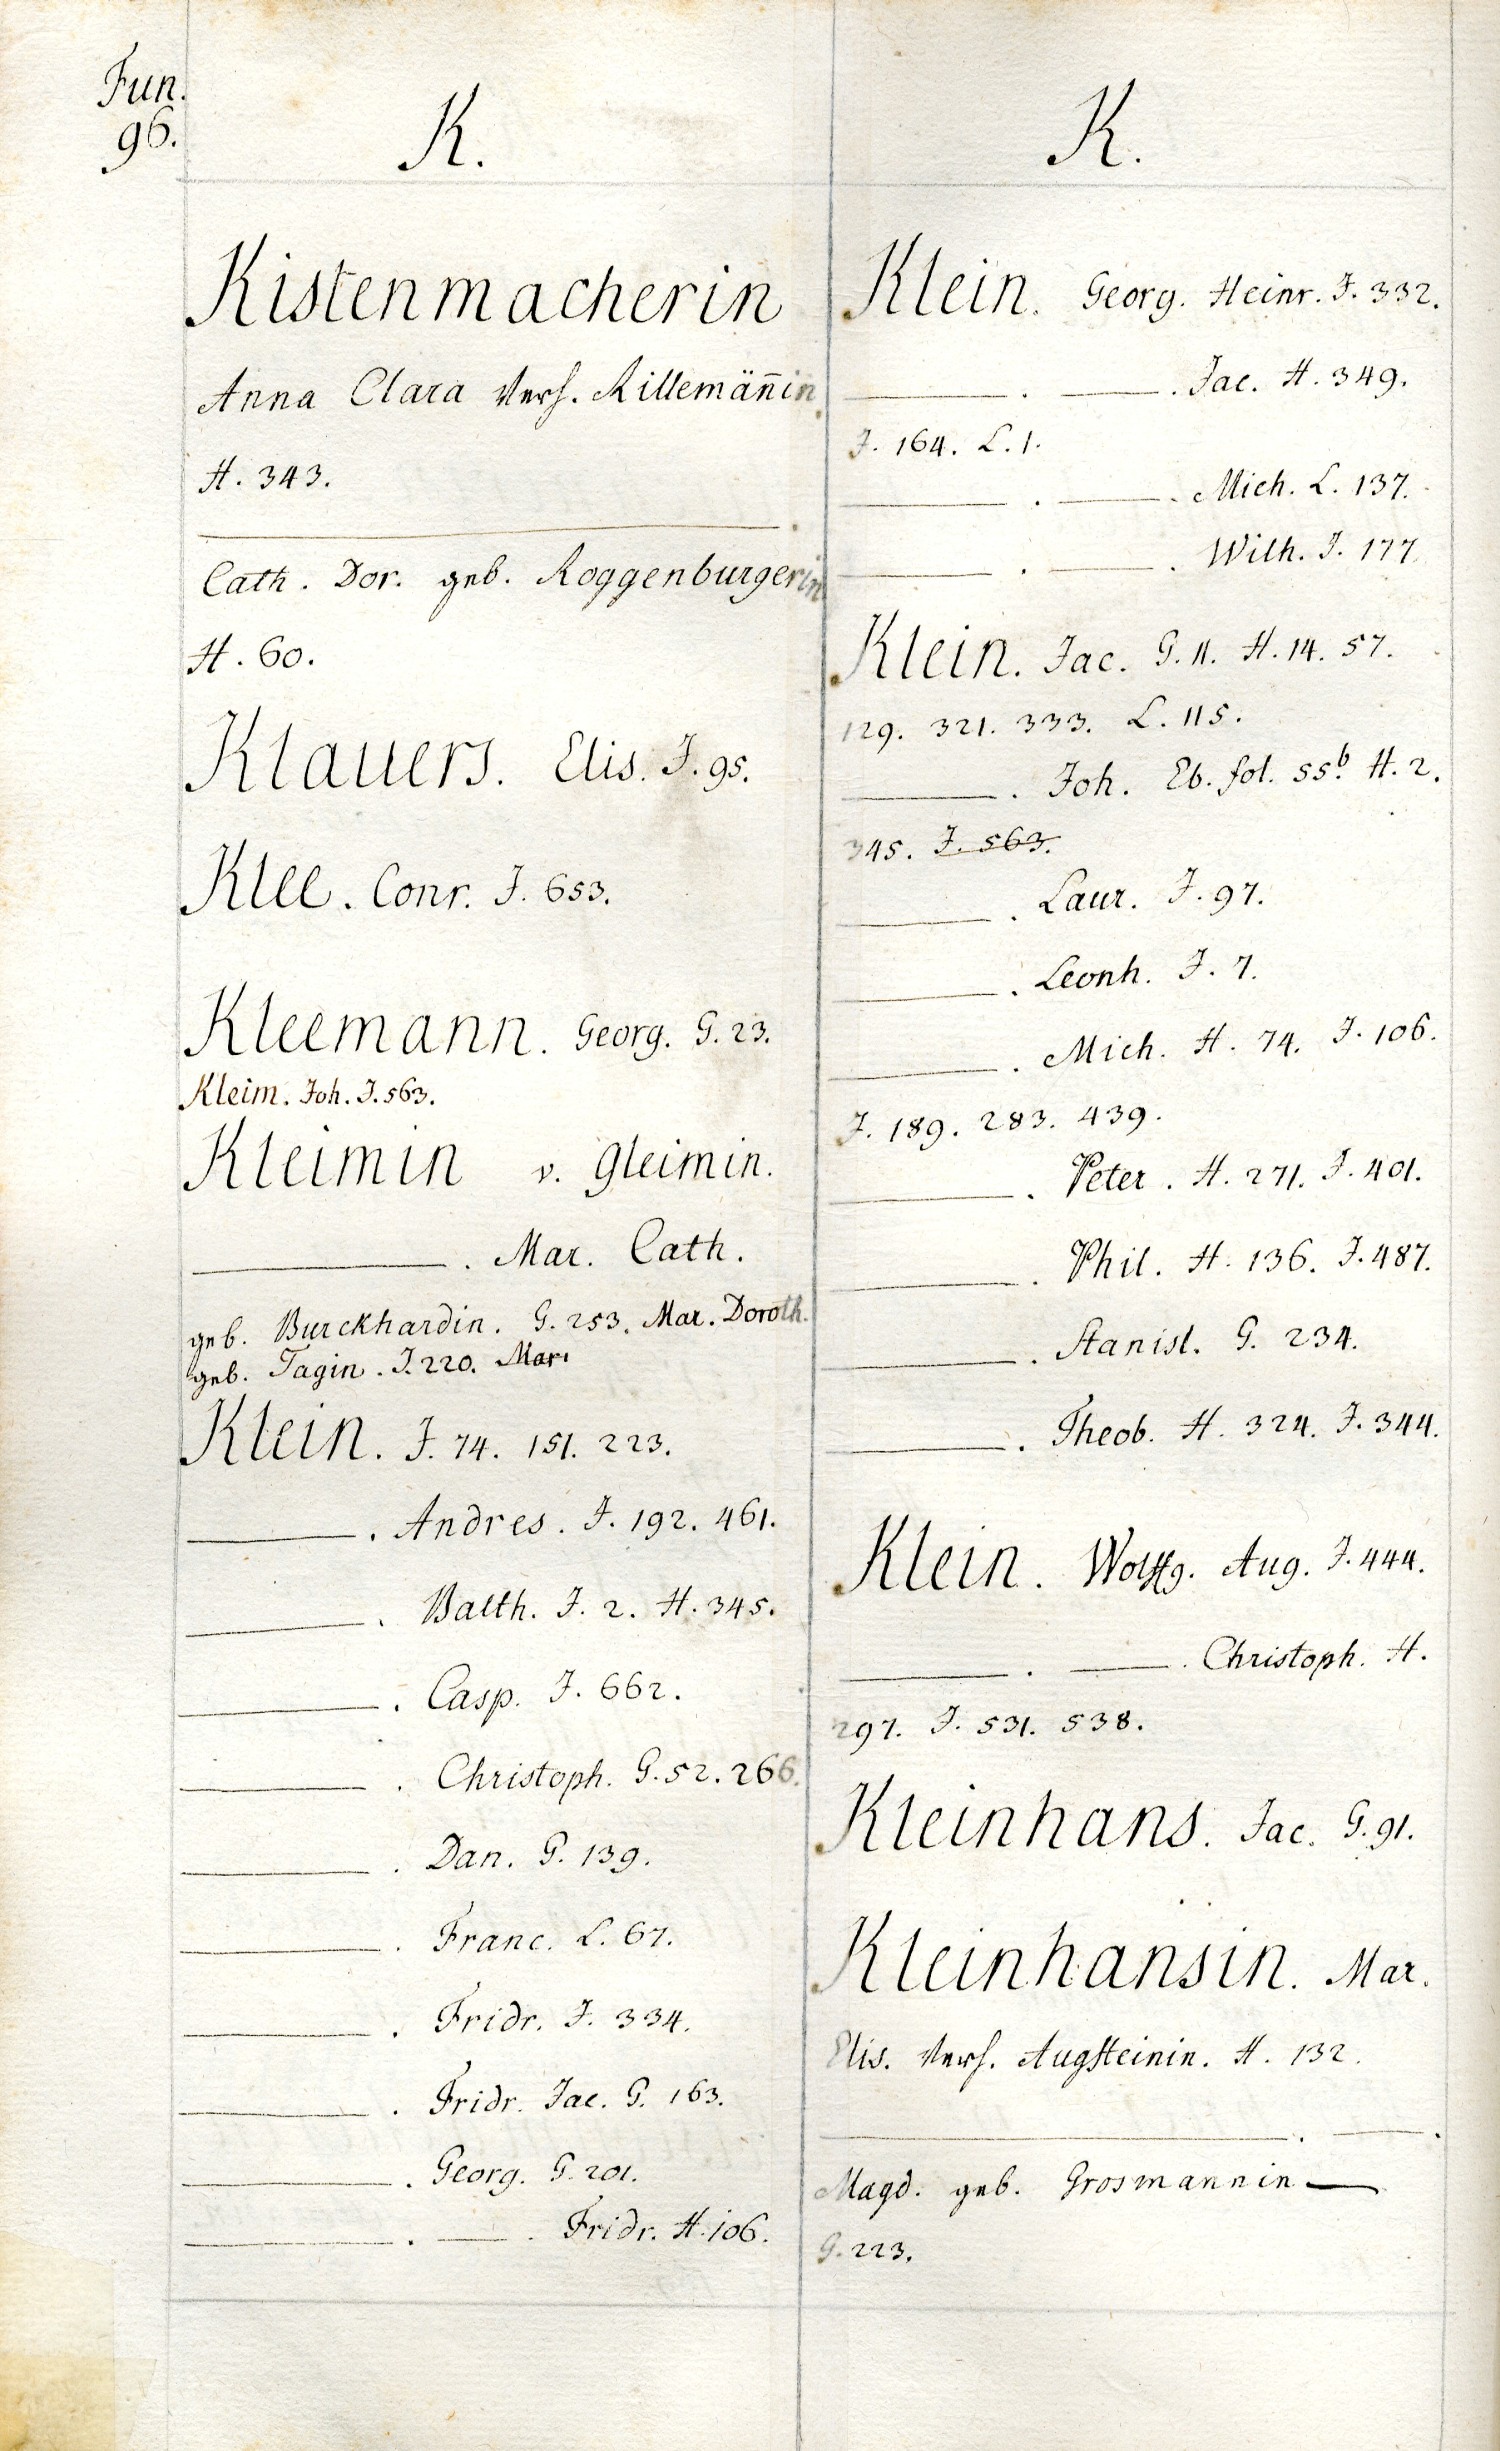 Fun.
96.
K.
Kistenmacherin
Anna Clara Vers. Killemän̄in
H. 343.
Cath. Dor. geb. Roggenburgerin
H. 60.
Klauers. Elis. J. 95.
Klee. Conr. J. 653.
Kleemann. Georg. G. 23.
Kleim. Joh. J. 563.
Kleimin v. Gleimin.
———. Mar. Cath.
geb. Burckhardin. G. 253. Mar. Doroth.
geb. Tagin. J. 220. Mar.
Klein. J. 74. 151. 223.
———. Andres. J. 192. 461.
———. Balth. J. 2. H. 345.
———. Casp. J. 662.
———. Christoph. G. 52. 266.
———. Dan. G. 139.
———. Franc. L. 67.
———. Fridr. J. 334.
———. Fridr. Jac. G. 163.
———. Georg. G. 201.
———. ——. Fridr. H. 106.
K.
Klein. Georg. Heinr. J. 332.
———. ——. Jac. H. 349.
J. 164. L. 1.
———. ——. Mich. L. 137.
———. ——. Wilh. J. 177.
Klein. Jac. G. 11. H. 14. 57.
129. 321. 333. L. 115.
———. Joh. Eb. fol. 55.b H. 2.
345. J. 563.
———. Laur. J. 97.
———. Leonh. J. 7.
———. Mich. H. 74. J. 106.
J. 189. 283. 439.
———. Peter. H. 271. J. 401.
———. Phil. H. 136. J. 487.
———. Stanisl. G. 234.
———. Theob. H. 324. J. 344.
Klein. Wolffg. Aug. J. 444.
———. ——. Christoph. H.
297. J. 531. 538.
Kleinhans. Jac. G. 91.
Kleinhansin. Mar.
Elis. Vers. Augsteinin. H. 132.
———. ——.
Magd. geb. Grosmannin —
G. 223.